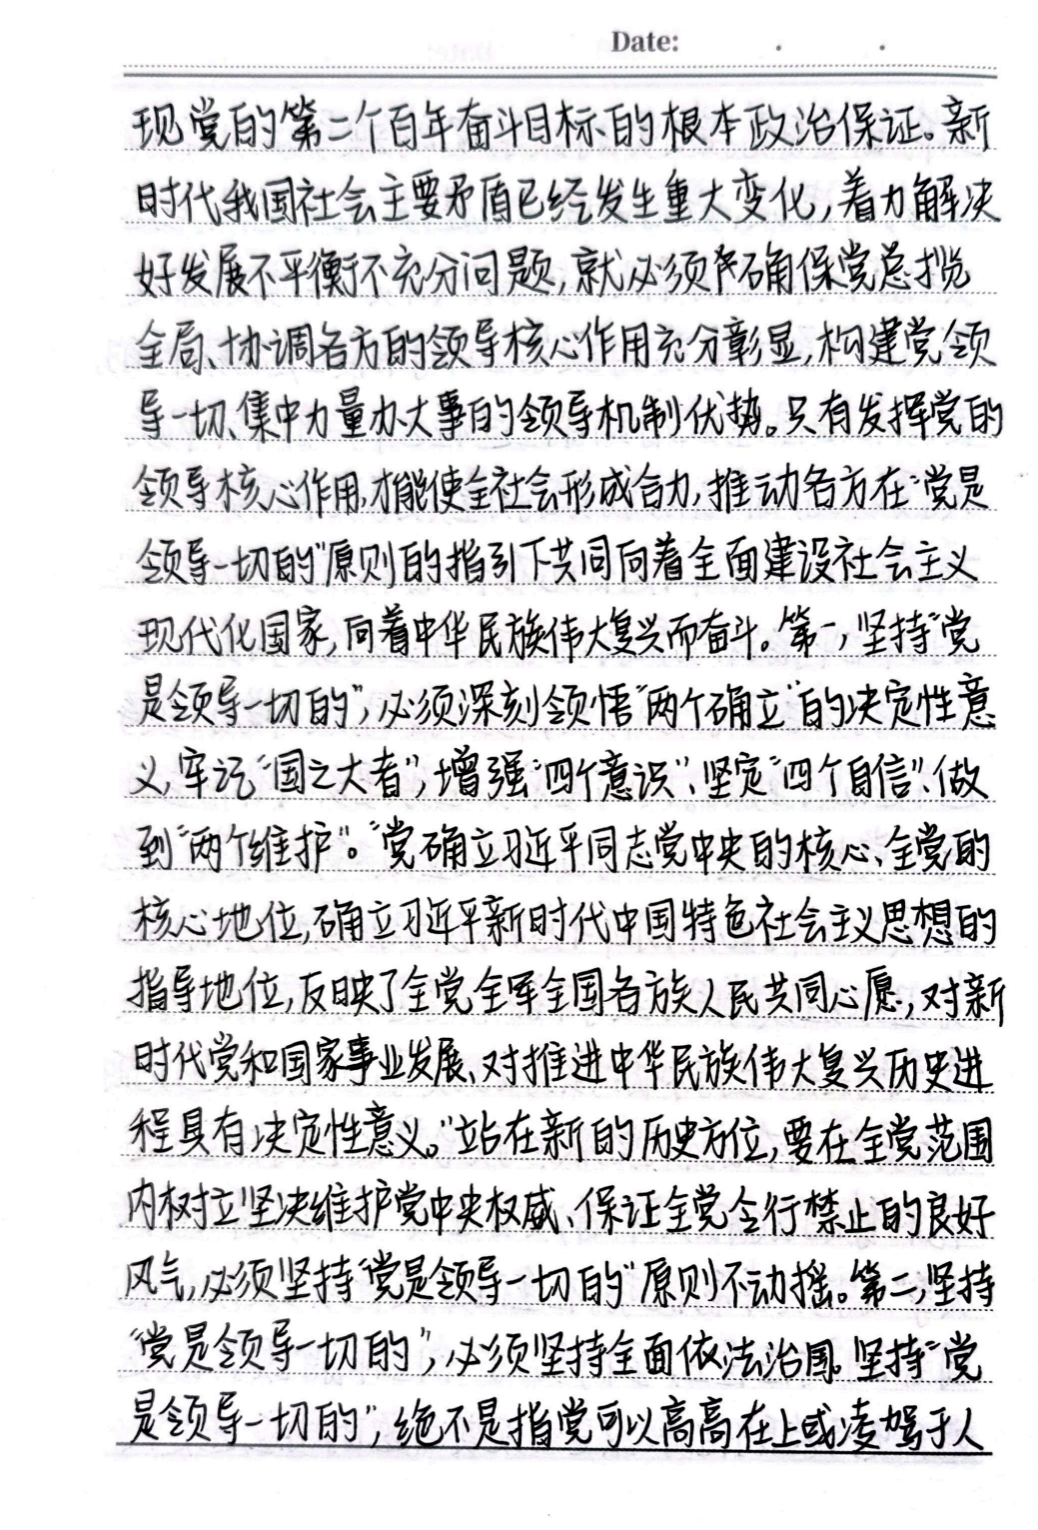 Date: . .
现党的第二个百年奋斗目标的根本政治保证。新
时代我国社会主要矛盾已经发生重大变化,着力解决
好发展不平衡不充分问题,就必须严确保党总揽
全局、协调各方的领导核心作用充分彰显,构建党领
导一切、集中力量办大事的领导机制优势。只有发挥党的
领导核心作用,才能使全社会形成合力,推动各方在“党是
领导一切的”原则的指引下共同向着全面建设社会主义
现代化国家,向着中华民族伟大复兴而奋斗。第一,坚持“党
是领导一切的”,必须深刻领悟“两个确立”的决定性意
义,牢记“国之大者”,增强“四个意识”、坚定“四个自信”、做
到“两个维护”。“党确立习近平同志党中央的核心、全党的
核心地位,确立习近平新时代中国特色社会主义思想的
指导地位,反映了全党全军全国各族人民共同心愿,对新
时代党和国家事业发展、对推进中华民族伟大复兴历史进
程具有决定性意义。”站在新的历史方位,要在全党范围
内树立坚决维护党中央权威、保证全党令行禁止的良好
风气,必须坚持“党是领导一切的”原则不动摇。第二,坚持
“党是领导一切的”,必须坚持全面依法治国。坚持“党
是领导一切的”,绝不是指党可以高高在上或凌驾于人